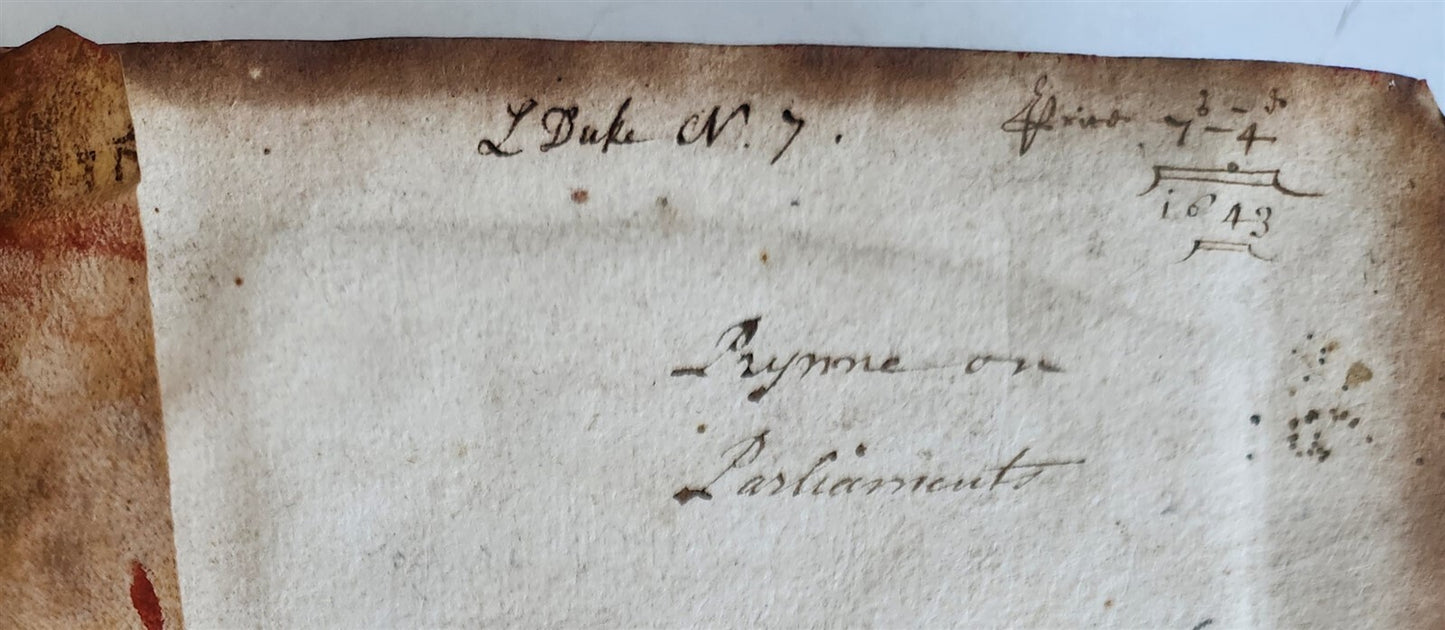 L Duke N. 7.
Price 7s - 4d
1643
Prynne on
Parliaments